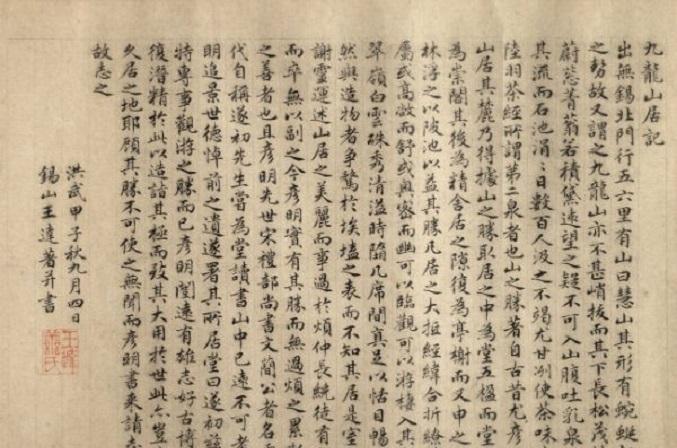 九龍山居記
出無錫北門行五六里有山曰慧山其形有蜿蜒
之勢故又謂之九龍山亦不甚峭拔而其下長松茂
蔚葱菁蓊若積黛遠望之疑不可入山腹吐乳泉
其流而石池涓〻日數百人汲之不竭尤甘冽使茶味
陸羽茶經所謂第二泉者也山之勝者自古昔尤彦
山居其麓乃得據山之勝取居之中為堂五楹而堂
為崇閣其後為精舍居之隙復為亭榭而又申之
林浮之以陂池以益其勝凡居之大抵經緯合折繚
屬或高敞而舒或奥密而幽可以臨觀可以游棲入其
翠嶺白雲殊秀清溢時隔几席間真足以怡目暢
然與造物者争驁於埃壒之表而不知其居是室
謝靈運述山居之美麗而事過於煩仲長統徒有
而卒無以副之今彦明實有其勝而無過煩之累
之善者也且彦明先世宋禮部尚書文簡公者名
代自稱遂初先生嘗為堂讀書山中已遠不可考
明追景世德悼前之遺遂署其所居堂曰遂初玆
特專事觀游之勝而已彦明閎遠有雄志好古博
復潛精於此以造詣其極而致其大用於世此亦豈
久居之地耶顧其勝不可使之無聞而彦明書來請
故志之
洪武甲子秋九月四日
錫山王達著并書